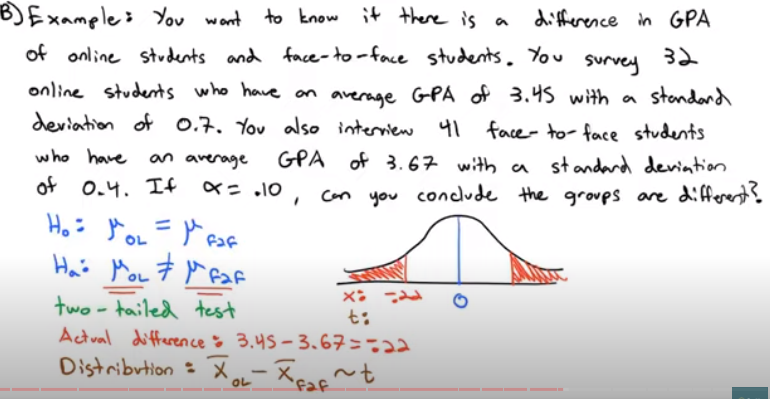 B) Example: You want to know if there is a difference in GPA
of online students and face-to-face students. You survey 32
online students who have an average GPA of 3.45 with a standard
deviation of 0.7. You also interview 41 face-to-face students
who have an average GPA of 3.67 with a standard deviation
of 0.4. If α = .10, can you conclude the groups are different?
H₀: μ_OL = μ_F2F
Hₐ: μ_OL ≠ μ_F2F
two-tailed test
x: -.22 0
t:
Actual difference: 3.45-3.67=-.22
Distribution: X̄_OL - X̄_F2F ~ t